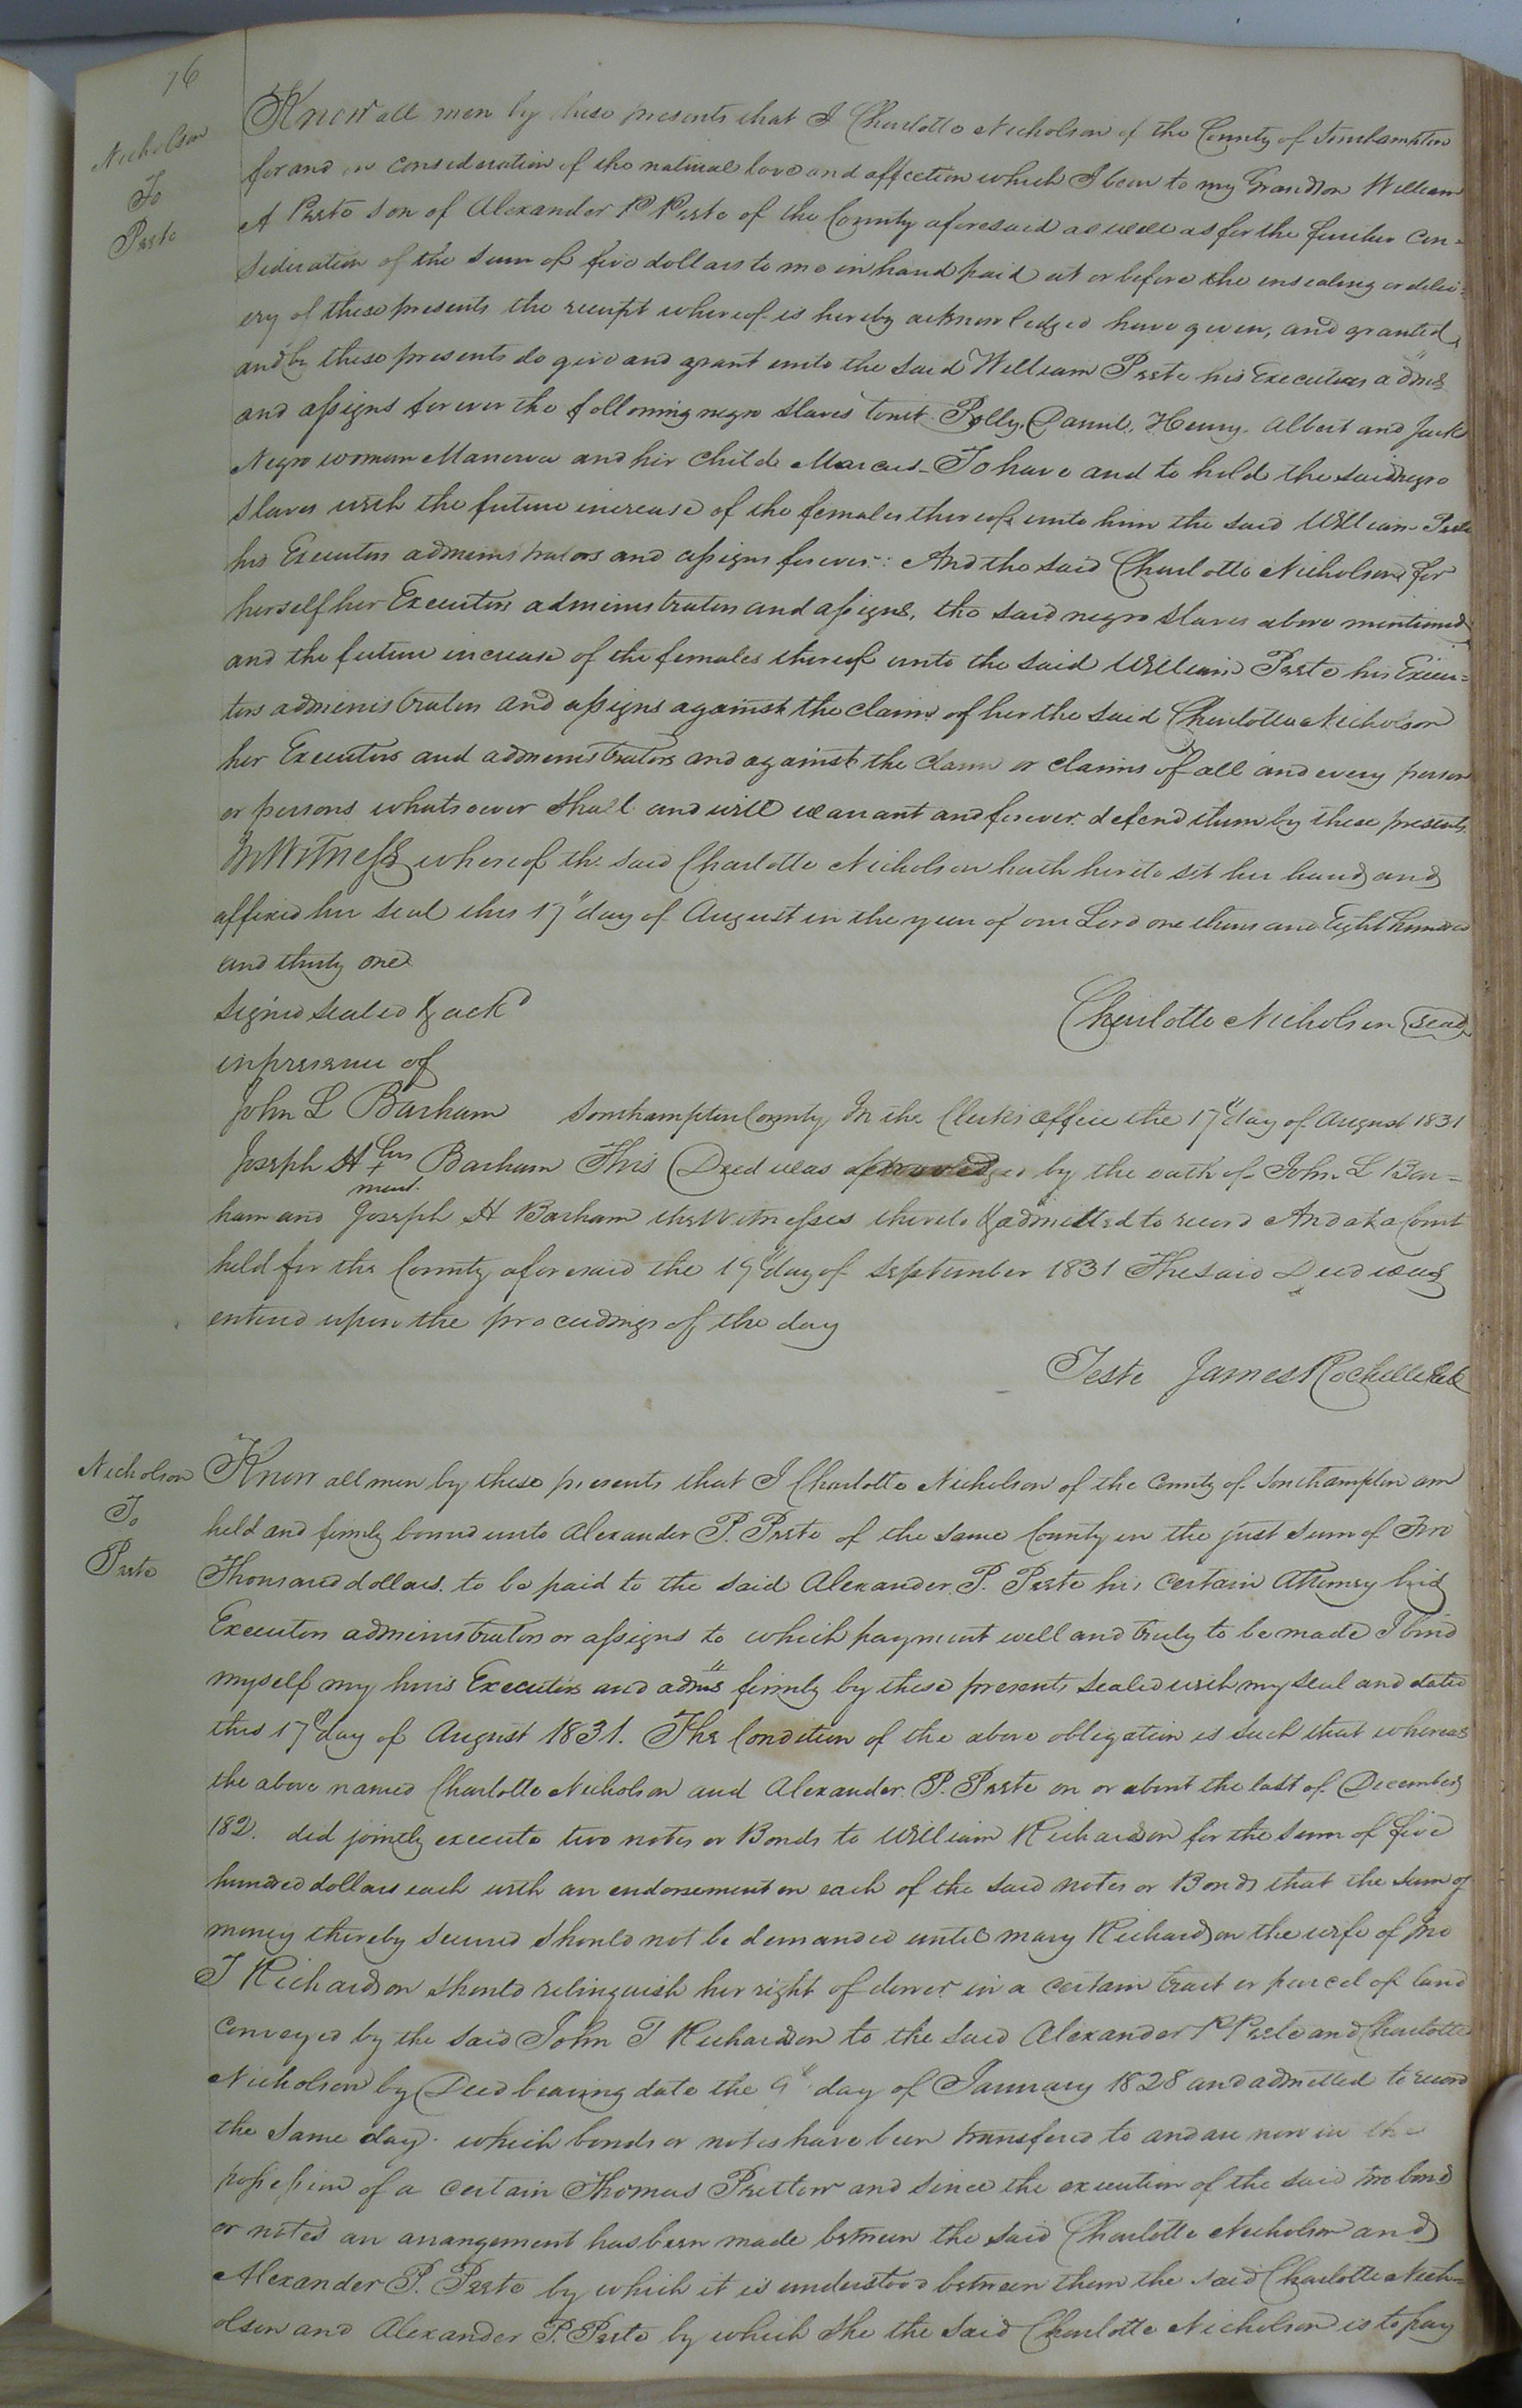 76
Nicholson
To
Peete
Know all men by these presents that I Charlotte Nicholson of the County of Southampton
for and in consideration of the natural love and affection which I bear to my Grandson William
A Peete son of Alexander P Peete of the County aforesaid as well as for the further con=
sideration of the sum of five dollars to me in hand paid at or before the ensealing or deliv=
ery of these presents the receipt whereof is hereby acknowledged have given, and granted,
and by these presents do give and grant unto the said William Peete his Executors adms
and assigns forever the following negro slaves towit Polly, Daniel, Henry, Albert and Jack
Negro woman Manerva and her child Marcus - To have and to hold the said negro
slaves with the future increase of the females thereof unto him the said William Peete
his Executors administrators and assigns forever: And the said Charlotte Nicholson for
herself her Executors administrators and assigns, the said negro slaves above mentioned
and the future increase of the females thereof unto the said William Peete his Execu=
tors administrators and assigns against the claim of her the said Charlotte Nicholson
her Executors and administrators and against the claim or claims of all and every person
or persons whatsoever shall and will warrant and forever defend them by these presents
In Witness whereof the said Charlotte Nicholson hath hereto set her hand and
affixed her seal this 17" day of August in the year of our Lord one thousand Eight hundred
and thirty one
signed sealed & ackd
in presence of
Charlotte Nicholson seal
John L Barham Southampton County In the Clerks office the 17" day of August 1831
Joseph H his + mark Barham This Deed was proved by the oath of John L Bar=
ham and Joseph H Barham the witnesses thereto & admitted to record And at a Court
held for the County aforesaid the 19" day of September 1831 The said Deed was
entered upon the proceedings of the day
Teste James Rochelle Clk
Nicholson
To
Peete
Know all men by these presents that I Charlotte Nicholson of the County of Southampton am
held and firmly bound unto Alexander P. Peete of the same County in the just sum of Two
Thousand dollars. to be paid to the said Alexander P. Peete his certain Attorney his
Executors administrators or assigns to which payment well and truly to be made I bind
myself my heirs Executors and adms firmly by these presents sealed with my seal and dated
this 17" day of August 1831. The Condition of the above obligation is such that whereas
the above named Charlotte Nicholson and Alexander P. Peete on or about the last of December
182. did jointly execute two notes or Bonds to William Richardson for the sum of five
hundred dollars each with an endorsement on each of the said notes or Bonds that the sum of
money thereby secured should not be demanded until Mary Richardson the wife of Jno
T Richardson should relinquish her right of dower in a certain tract or parcel of land
conveyed by the said John T Richardson to the said Alexander P Peete and Charlotte
Nicholson by Deed bearing date the 9" day of January 1828 and admitted to record
the same day. which bonds or notes have been transfered to and are now in the
possession of a certain Thomas Pretlow and since the execution of the said two bonds
or notes an arrangement has been made between the said Charlotte Nicholson and
Alexander P. Peete by which it is understood between them the said Charlotte Nich=
olson and Alexander P. Peete by which she the said Charlotte Nicholson is to pay